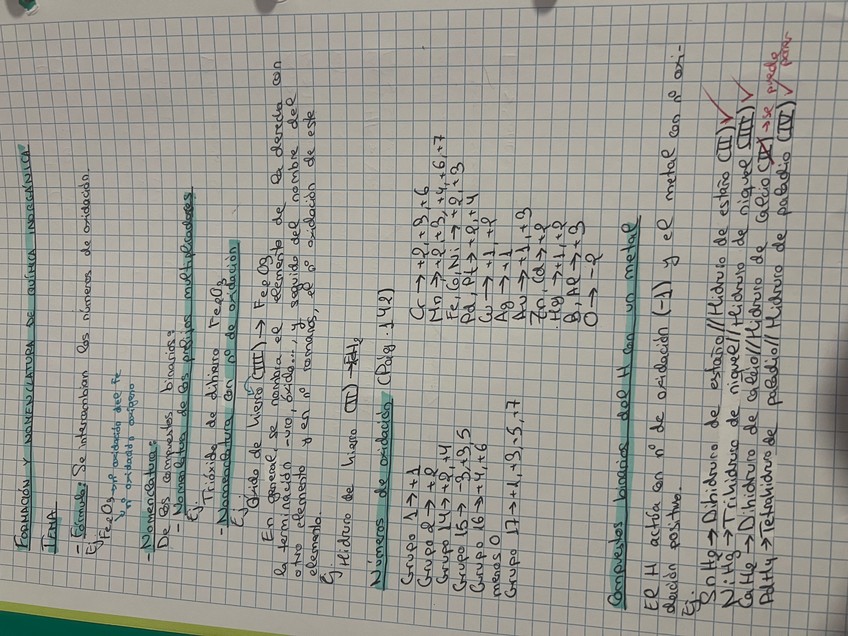 FORMACIÓN Y NOMENCLATURA DE QUÍMICA INORGÁNICA
TEMA
- Fórmula: Se intercambian los números de oxidación.
Ej:
Fe₂O₃ → nº oxidación del Fe
nº oxidación oxígeno
- Nomenclatura:
De los compuestos binarios:
- Nomenclatura de los prefijos multiplicadores
Ej:
Trióxido de dihierro Fe₂O₃
- Nomenclatura con nº de oxidación
Ej:
Óxido de hierro (III) → Fe₂O₃
En general, se nombra el elemento de la derecha con
la terminación -uro, óxido..., y seguido del nombre del
otro elemento y en nº romanos, el nº oxidación de este
elemento.
Ej
Hidruro de hierro (II) → FeH₂
Números de oxidación (Pág. 142)
Grupo 1 → +1
Grupo 2 → +2
Grupo 14 → +2, +4
Grupo 15 → -3, +3, 5
Grupo 16 → +4, +6
menos O
Grupo 17 → +1, +3, +5, +7
Cr → +2, +3, +6
Mn → +2, +3, +4, +6, +7
Fe, Co, Ni → +2, +3
Pd, Pt → +2, +4
Cu → +1, +2
Ag → +1
Au → +1, +3
Zn, Cd → +2
Hg → +1, +2
B, Al → +3
O → -2
Compuestos binarios del H con un metal
El H actúa con nº de oxidación (-1) y el metal con nº oxi-
dación positivo.
Ej.
SnH₂ → Dihidruro de estaño // Hidruro de estaño (II) ✓
NiH₃ → Trihidruro de niquel // Hidruro de niquel (III) ✓
CaH₂ → Dihidruro de calcio // Hidruro de calcio (II) → se puede
PdH₄ → Tetrahidruro de paladio // Hidruro de paladio (IV) ✓